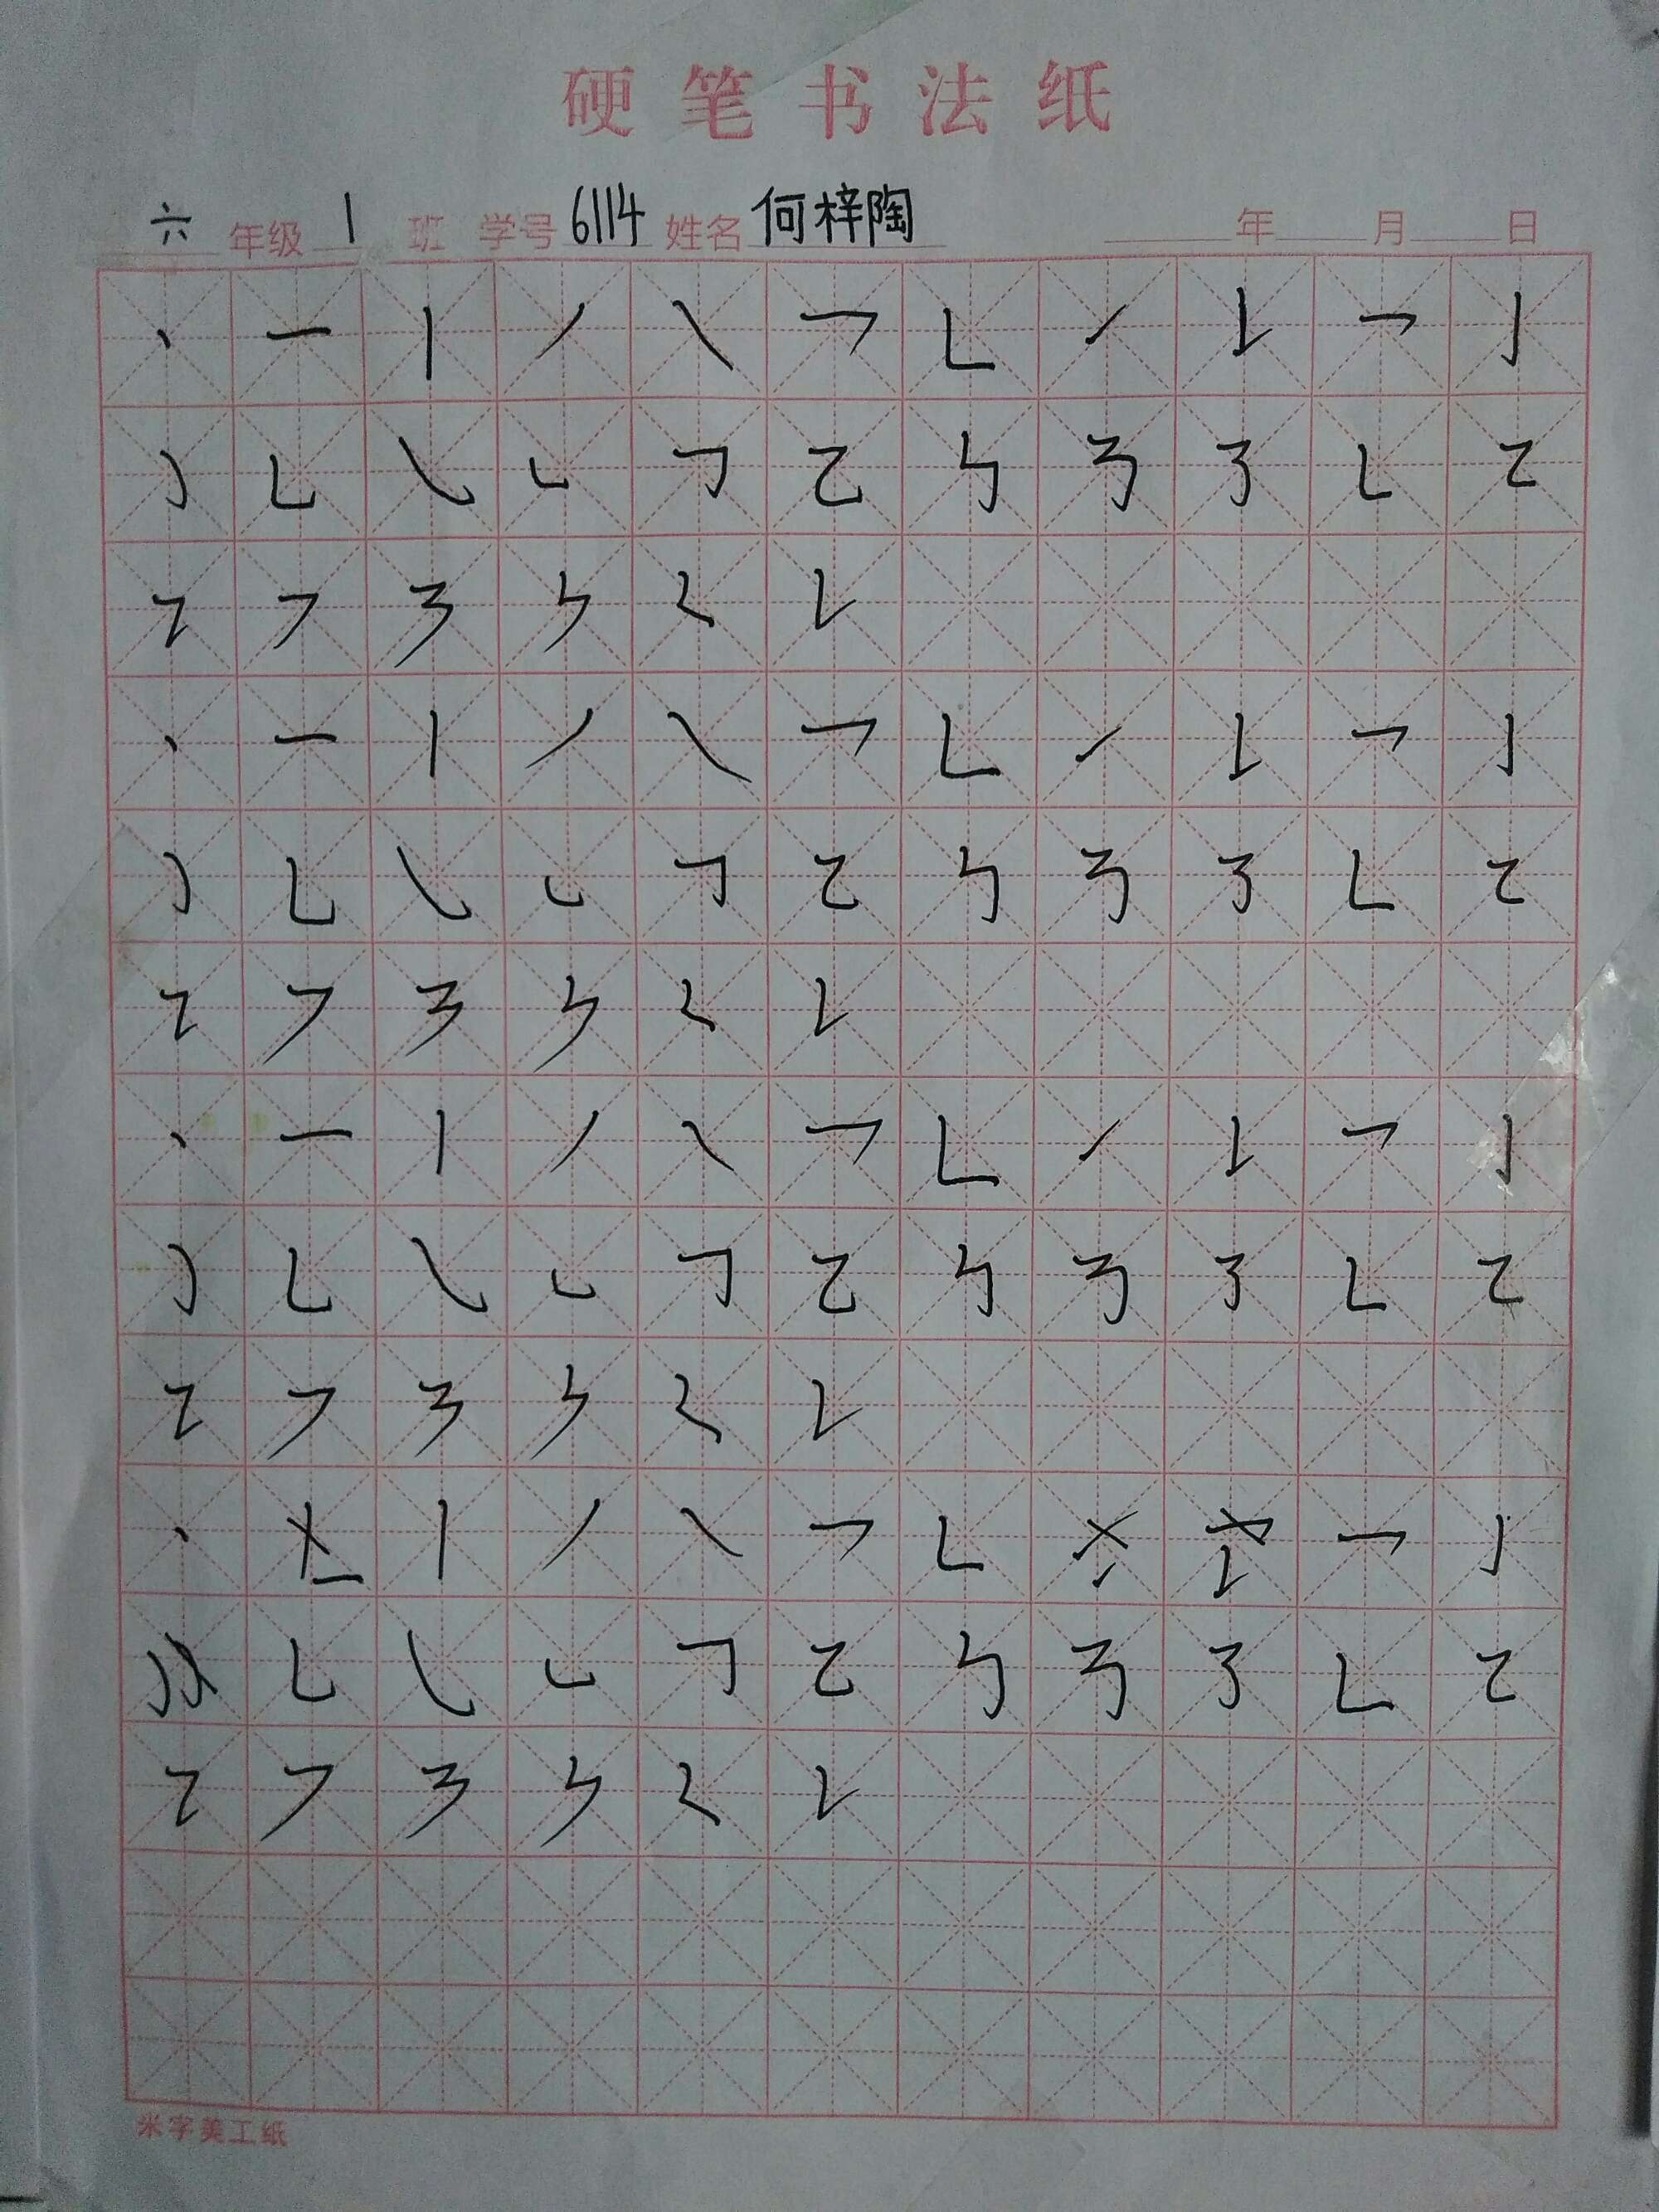 硬笔书法纸
六 年级 1 班 学号 6114 姓名 何梓陶 年 月 日
丶 一 丨 丿 ㇏ ㇇ ㇗ ㇀ ㇙ ㇖ 亅
㇁ ㇄ ㇂ ㇃ ㇆ 乙 ㇉ ㇡ ㇌ ㇄ ㇍
㇍ ㇇ ㇋ ㇉ ㇛ ㇙
丶 一 丨 丿 ㇏ ㇇ ㇗ ㇀ ㇙ ㇖ 亅
㇁ ㇄ ㇂ ㇃ ㇆ 乙 ㇉ ㇡ ㇌ ㇄ ㇍
㇍ ㇇ ㇋ ㇉ ㇛ ㇙
丶 一 丨 丿 ㇏ ㇇ ㇗ ㇀ ㇙ ㇖ 亅
㇁ ㇄ ㇂ ㇃ ㇆ 乙 ㇉ ㇡ ㇌ ㇄ ㇍
㇍ ㇇ ㇋ ㇉ ㇛ ㇙
丶 一 丨 丿 ㇏ ㇇ ㇗ ㇀ ㇙ ㇖ 亅
㇁ ㇄ ㇂ ㇃ ㇆ 乙 ㇉ ㇡ ㇌ ㇄ ㇍
㇍ ㇇ ㇋ ㇉ ㇛ ㇙
米字美工纸